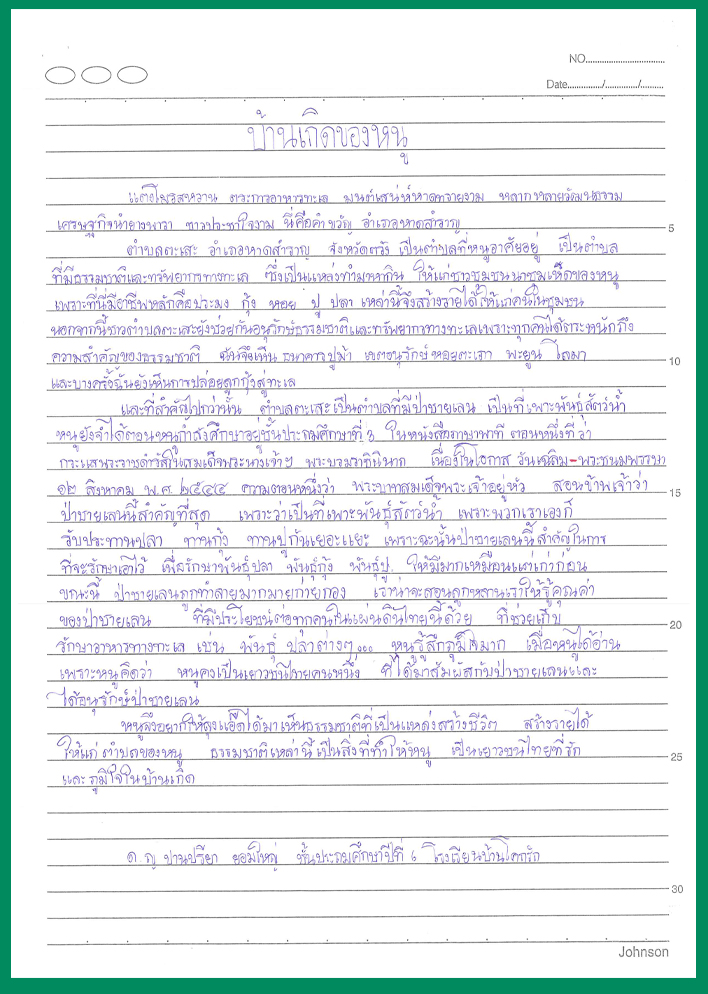 NO.
Date............/............/.........
บ้านเกิดของหนู
แตงโมรสหวาน ตระการอาหารทะเล มนต์เสน่ห์หาดทรายงาม หลากหลายวัฒนธรรม
เศรษฐกิจนำยางพารา ชาวประชาใจงาม นี่คือคำขวัญ อำเภอหาดสำราญ
5
ตำบลตะเสะ อำเภอหาดสำราญ จังหวัดตรัง เป็นตำบลที่หนูอาศัยอยู่ เป็นตำบล
ที่มีธรรมชาติและทรัพยากรทางทะเล ซึ่งเป็นแหล่งทำมาหากิน ให้แก่ชาวชุมชน ของหนู
เพราะที่นี่มีอาชีพหลักคือประมง กุ้ง หอย ปู ปลา เหล่านี้จึงสร้างรายได้ให้แก่คนในชุมชน
นอกจากนี้ชาวตำบลตะเสะยังช่วยกันอนุรักษ์ธรรมชาติและทรัพยากรทางทะเลเพราะทุกคนได้ตระหนักถึง
ความสำคัญของธรรมชาติ ฉันจึงเห็น ธนาคารปูม้า เขตอนุรักษ์หอยตะเภา พะยูน โลมา
10
และบางครั้งฉันยังเห็นการปล่อยลูกกุ้งสู่ทะเล
และที่สำคัญไปกว่านั้น ตำบลตะเสะเป็นตำบลที่มีป่าชายเลน เป็นที่เพาะพันธุ์สัตว์น้ำ
หนูยังจำได้ตอนหนูกำลังศึกษาอยู่ชั้นประถมศึกษาที่ 3 ในหนังสือภาษาพาที ตอนหนึ่งที่ว่า
กระแสพระราชดำรัสในสมเด็จพระนางเจ้าฯ พระบรมราชินีนาถ เนื่องในโอกาส วันเฉลิม-พระชนมพรรษา
๑๒ สิงหาคม พ.ศ ๒๕๔๔ ความตอนหนึ่งว่า พระบาทสมเด็จพระเจ้าอยู่หัว สอนข้าพเจ้าว่า
15
ป่าชายเลนนี้สำคัญที่สุด เพราะว่าเป็นที่เพาะพันธุ์สัตว์น้ำ เพราะพวกเราเองก็
รับประทานปลา ทานกุ้ง ทานปูกันเยอะแยะ เพราะฉะนั้นป่าชายเลนนี้สำคัญในการ
ที่จะรักษาเอาไว้ เพื่อรักษาพันธุ์ปลา พันธุ์กุ้ง พันธุ์ปู ให้มีมากเหมือนแต่เก่าก่อน
ขณะนี้ ป่าชายเลนถูกทำลายมากมายก่ายกอง เราน่าจะสอนลูกหลานเราให้รู้คุณค่า
ของป่าชายเลน ที่มีประโยชน์ต่อทุกคนในแผ่นดินไทยนี้ด้วย ที่ช่วยเก็บ
20
รักษาอาหารทางทะเล เช่น พันธุ์ ปลาต่างๆ... หนูรู้สึกภูมิใจมาก เมื่อหนูได้อ่าน
เพราะหนูคิดว่า หนูคงเป็นเยาวชนไทยคนหนึ่ง ที่ได้มาสัมผัสกับป่าชายเลนและ
ได้อนุรักษ์ป่าชายเลน
หนูจึงอยากให้ลุงแอ๊ดได้มาเห็นธรรมชาติที่เป็นแหล่งสร้างชีวิต สร้างรายได้
ให้แก่ ตำบลของหนู ธรรมชาติเหล่านี้เป็นสิ่งที่ทำให้หนู เป็นเยาวชนไทยที่รัก
25
และภูมิใจในบ้านเกิด
ด.ญ ปานปรียา ยอมใหญ่ ชั้นประถมศึกษาปีที่ 6 โรงเรียนบ้านโคกรัก
30
Johnson